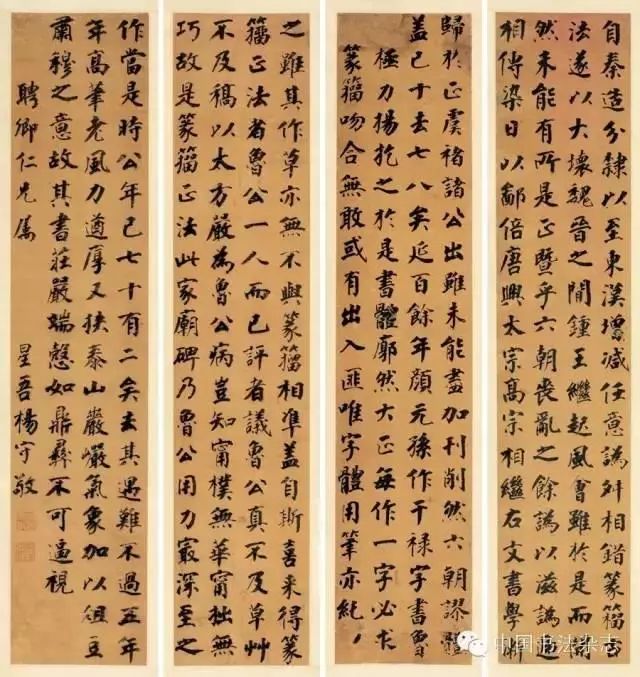 自秦造分隸以至東漢增減任意譌舛相錯篆籀古
法遂以大壞魏晉之閒鍾王繼起風會雖於是而開
然未能有所是正暨乎六朝喪亂之餘譌以滋譌遞
相傳染日以鄙倍唐興太宗高宗相繼右文書學漸
歸於正虞褚諸公出雖未能盡加刊削然六朝謬體
蓋已十去七八矣延百餘年顏元孫作干祿字書魯公
極力揚扢之於是書體廓然大正每作一字必求
篆籀吻合無敢或有出入匪唯字體用筆亦純
之雖其作草亦無不與篆籀相準蓋自斯喜來得篆
籀正法者魯公一人而已評者議魯公真不及草艸
不及稿以太方嚴為魯公病豈知甯樸無華甯拙無
巧故是篆籀正法此家廟碑乃魯公用力最深至之
作當是時公年已七十有二矣去其遇難不過五年
年高筆老風力遒厚又挾泰山巖巖氣象加以俎豆
肅穆之意故其書莊嚴端愨如鼎彝不可逼視
聘卿仁兄屬
星吾楊守敬
中国书法杂志